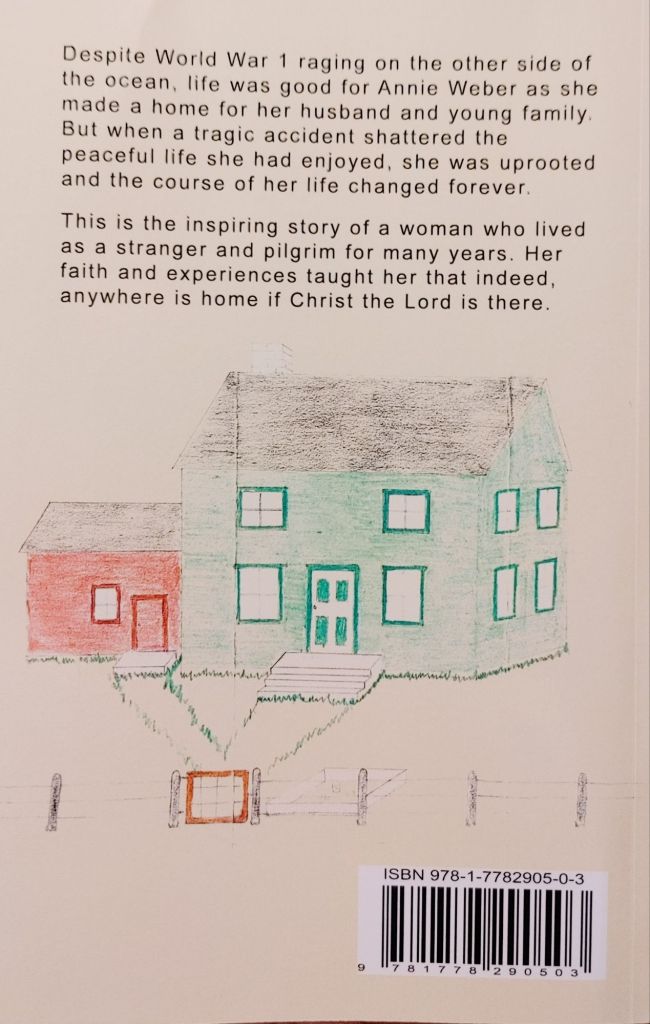 Despite World War 1 raging on the other side of
the ocean, life was good for Annie Weber as she
made a home for her husband and young family.
But when a tragic accident shattered the
peaceful life she had enjoyed, she was uprooted
and the course of her life changed forever.
This is the inspiring story of a woman who lived
as a stranger and pilgrim for many years. Her
faith and experiences taught her that indeed,
anywhere is home if Christ the Lord is there.
ISBN 978-1-7782905-0-3
9 781778 290503